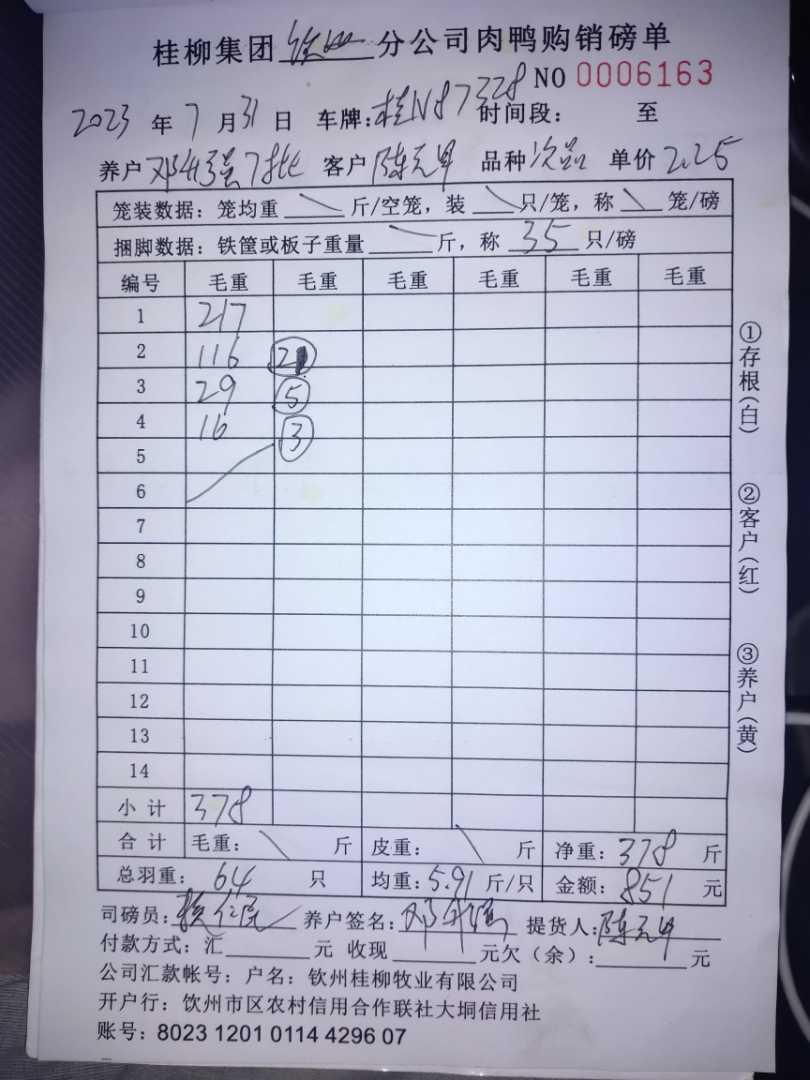 桂柳集团钦州分公司肉鸭购销磅单
NO 0006163
2023年7月31日 车牌:桂N87328 时间段: 至
养户 邓 7批 客户 陈元甲 品种 次品 单价 2.25
笼装数据: 笼均重 \ 斤/空笼, 装 \ 只/笼, 称 \ 笼/磅
捆脚数据: 铁筐或板子重量 \ 斤, 称 35 只/磅
编号 毛重 毛重 毛重 毛重 毛重 毛重
1 217
2 116
3 29 5
4 16 3
5
6
7
8
9
10
11
12
13
14
小计 378
合计 毛重: \ 斤 皮重: \ 斤 净重: 378 斤
总羽重: 64 只 均重: 5.91 斤/只 金额: 851 元
司磅员: 养户签名: 邓 提货人: 陈元甲
付款方式: 汇 元 收现 元欠(余): 元
公司汇款帐号: 户名: 钦州桂柳牧业有限公司
开户行: 饮州市区农村信用合作联社大垌信用社
账号: 8023 1201 0114 4296 07
①存根(白)
②客户(红)
③养户(黄)